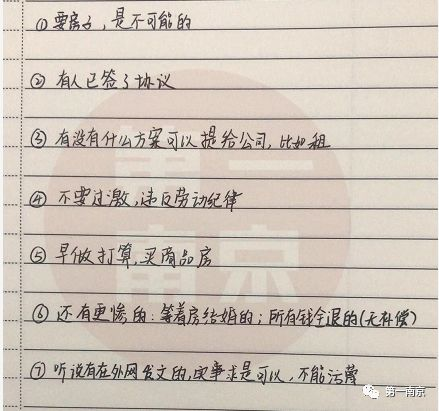 ①要房子，是不可能的
②有人已签了协议
③有没有什么方案可以提给公司，比如租
④不要过激，违反劳动纪律
⑤早做打算，买商品房
⑥还有更惨的：等着房结婚的；所有钱全退的(无补偿)
⑦听说有在外网发文的，实事求是可以，不能污蔑
第一南京
第一南京